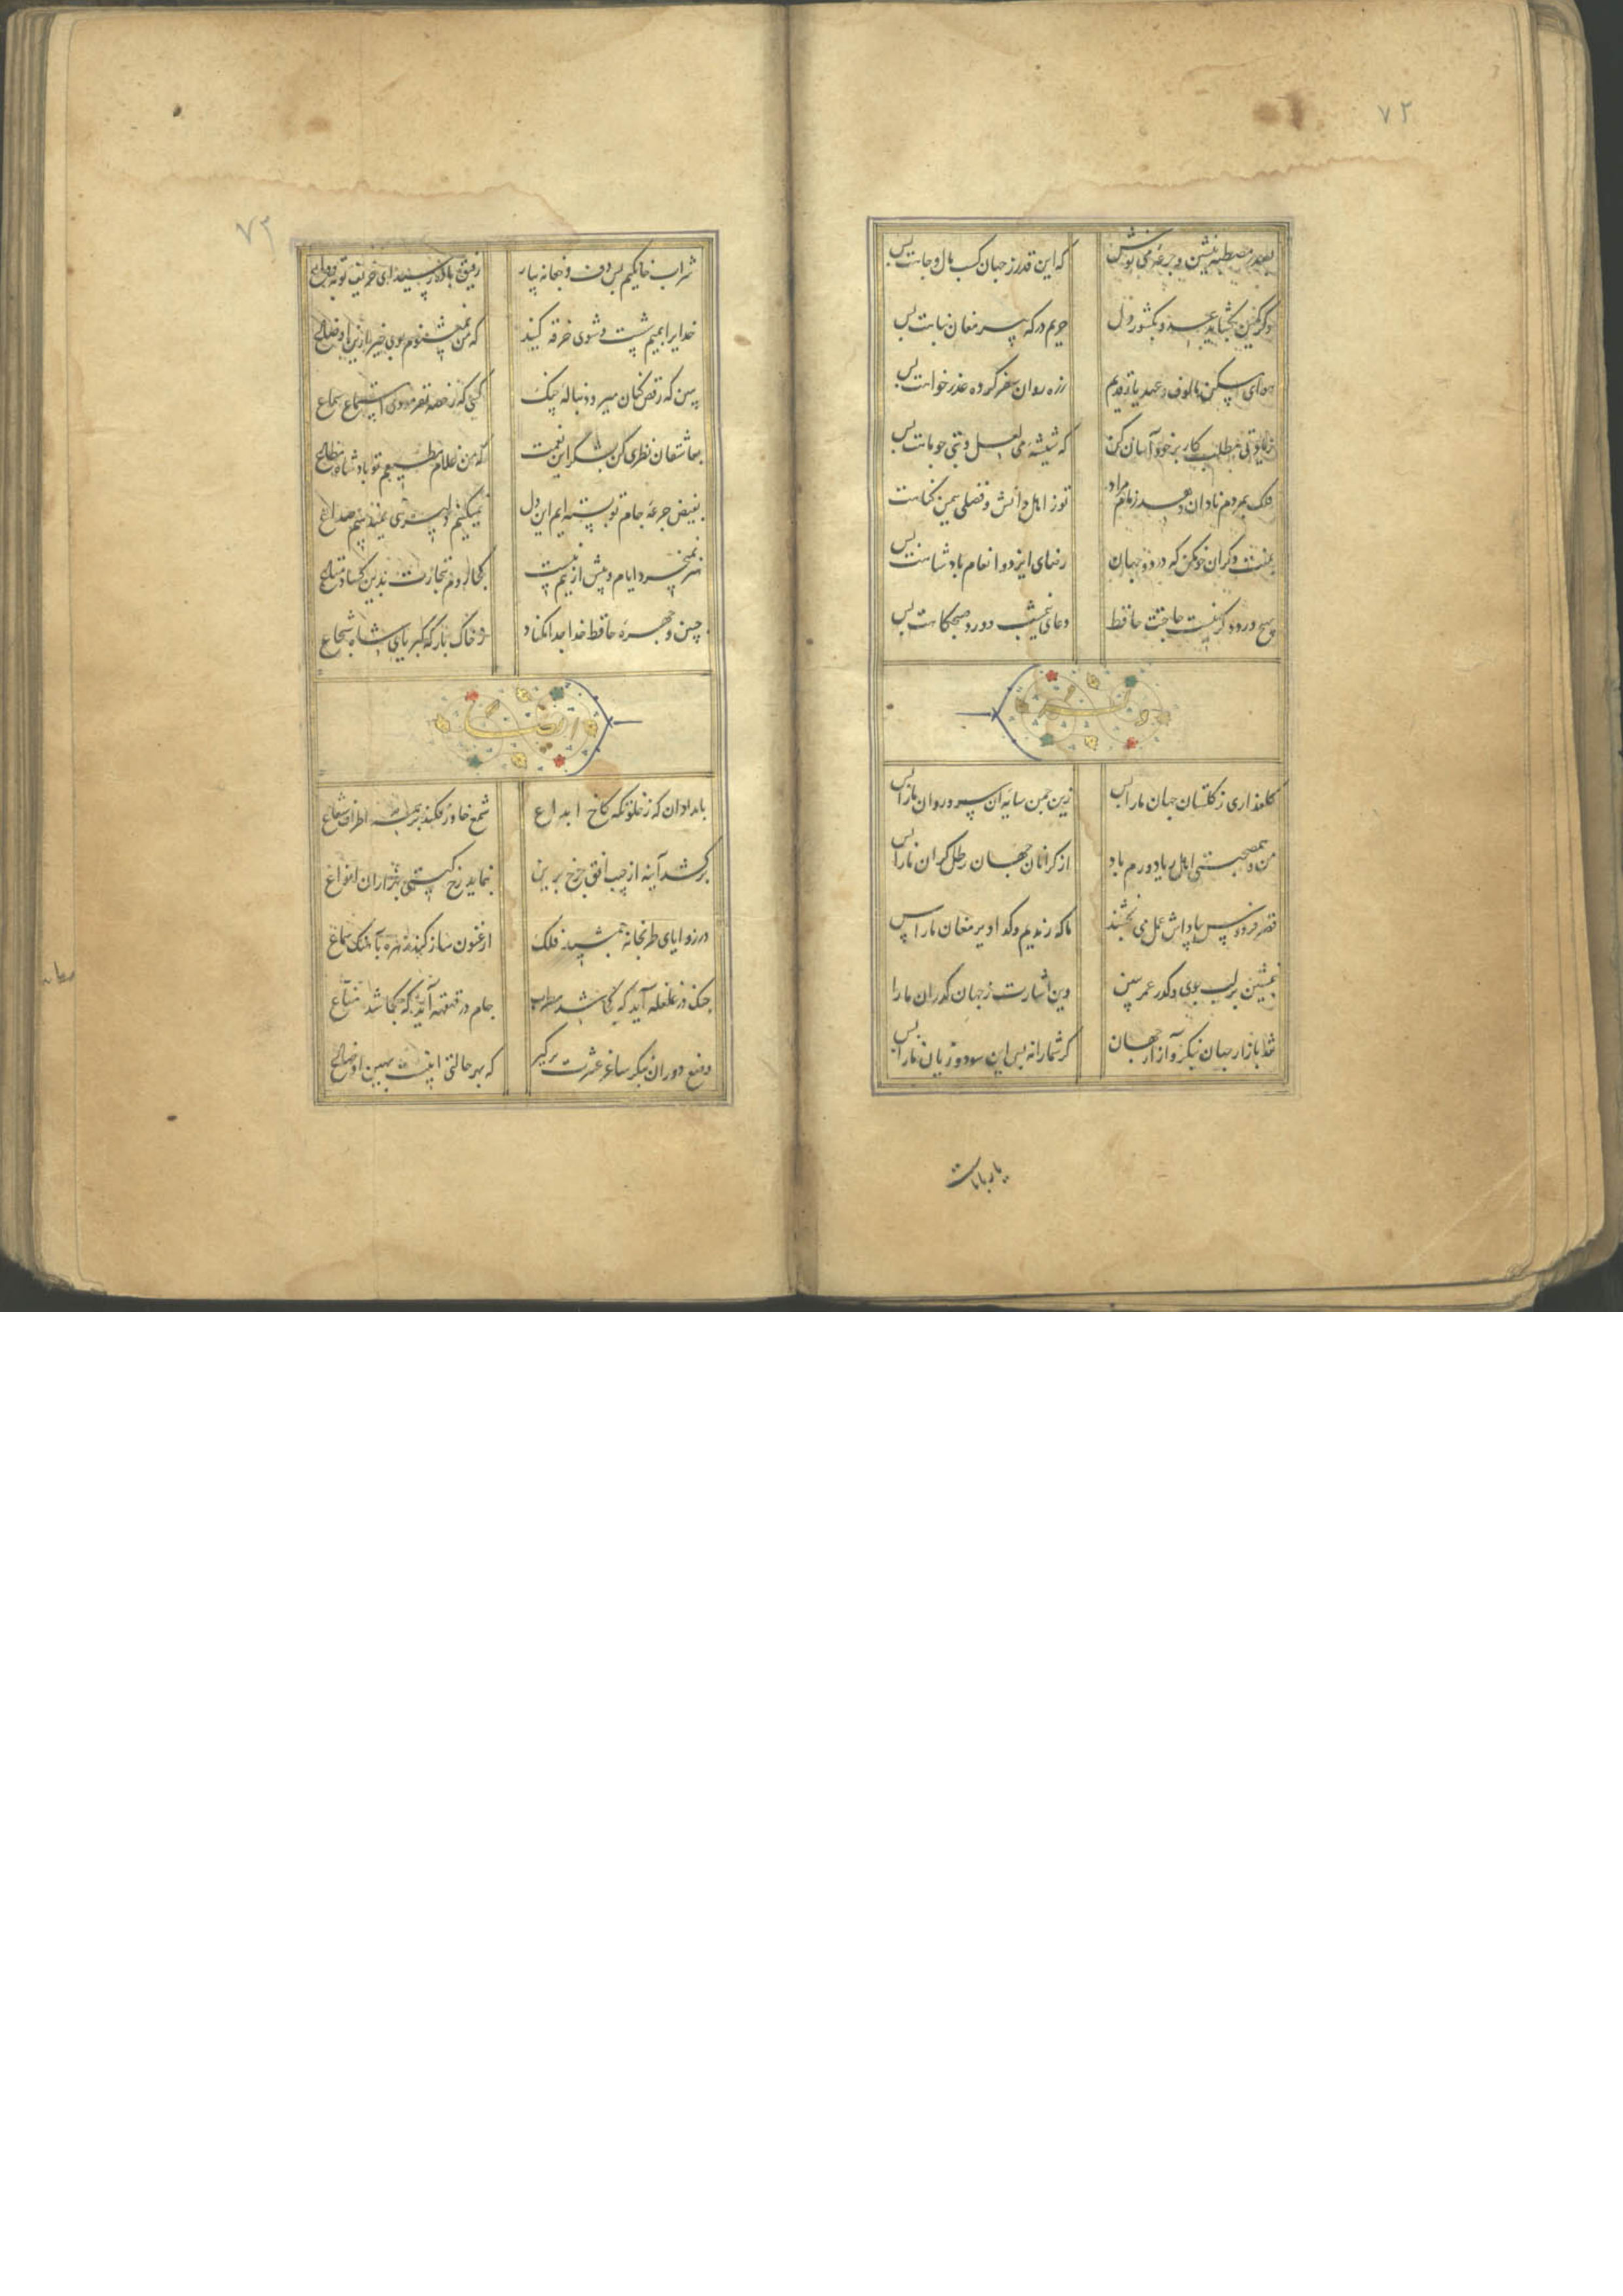 ۷۲
بصدر مصطبه بنشین و جرعه می نوش
که این قدر ز جهان کسب مال و جاهت بس
وگر کمین بکشاید غمی ز کشور دل
حریم درگه پیر مغان پناهت بس
هوای مسکن مالوف و عهد یار قدیم
ز ره روان سفر کرده عذر خواهت بس
زیادتی مطلب کار بر خود آسان کن
که شیشه می لعل و بتی چو ماهت بس
فلک بمردم نادان دهد زمام مراد
تو ز اهل دانش و فضلی همین گناهت بس
بمنت دگران خو مکن که در دو جهان
رضای ایزد و انعام پادشاهت بس
بهیچ ورد دگر نیست حاجت حافظ
دعای نیمشب و ورد صبحگاهت بس
گلعذاری ز گلستان جهان ما را بس
زین چمن سایه آن سرو روان ما را بس
من و همصحبتی اهل ریا دورم باد
از گرانان جهان رطل گران ما را بس
قصر فردوس پاداش عمل می بخشند
ما که رندیم و گدا دیر مغان ما را بس
بنشین بر لب جوی و گذر عمر ببین
وین اشارت ز جهان گذران ما را
نقد بازار جهان بنگر و آزار جهان
گر شما را نه بس این سود و زیان ما را بس
یار با ماست
۷۳
شراب خانگیم بس دف و چغانه بیار
رفیق باده رسید ای حریف توبه وداع
خدایرا بمیم شست و شوی خرقه کنید
که من نمیشنوم بوی خیر ازین اوضاع
ببین که رقص کنان میرود بناله چنگ
کسی که رخصه نفرمودی استماع سماع
بعاشقان نظری کن بشکر این نعمت
که من غلام مطیعم تو پادشاه مطاع
بفیض جرعه جام تو تشنه ایم این دل
نمیکنیم دلیری نمیدهیم صداع
هنر نمیخرد ایام و بیش ازینم نیست
کجا روم بتجارت بدین کساد متاع
جبین و چهره حافظ خدا جدا مکناد
ز خاک بارگه کبریای شاه شجاع
بامدادان که ز خلوتگه کاخ ابداع
شمع خاور فکند بر همه اطراف شعاع
برکشد آینه از جیب افق چرخ برین
بنماید رخ گیتی بهزاران انواع
در زوایای طربخانه جمشید فلک
ارغنون ساز کند زهره بآهنگ سماع
چنگ در غلغله آید که کجا شد
جام در قهقهه آید که کجا شد مناع
وضع دوران بنگر ساغر عشرت برگیر
که بهر حالتی اینست بهین اوضاع